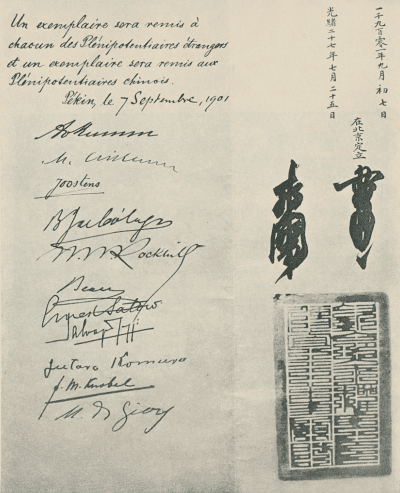 Un exemplaire sera remis à
chacun des Plénipotentiaires étrangers
et un exemplaire sera remis aux
Plénipotentiaires chinois.
Pékin, le 7 Septembre, 1901
Joostens
W. W. Rockhill
Beau
Ernest Satow
Salvago Raggi
Jutaro Komura
F. M. Knobel
M. de Giers
一千九百零一年九月初七日
光緒二十七年七月二十五日
在北京定立